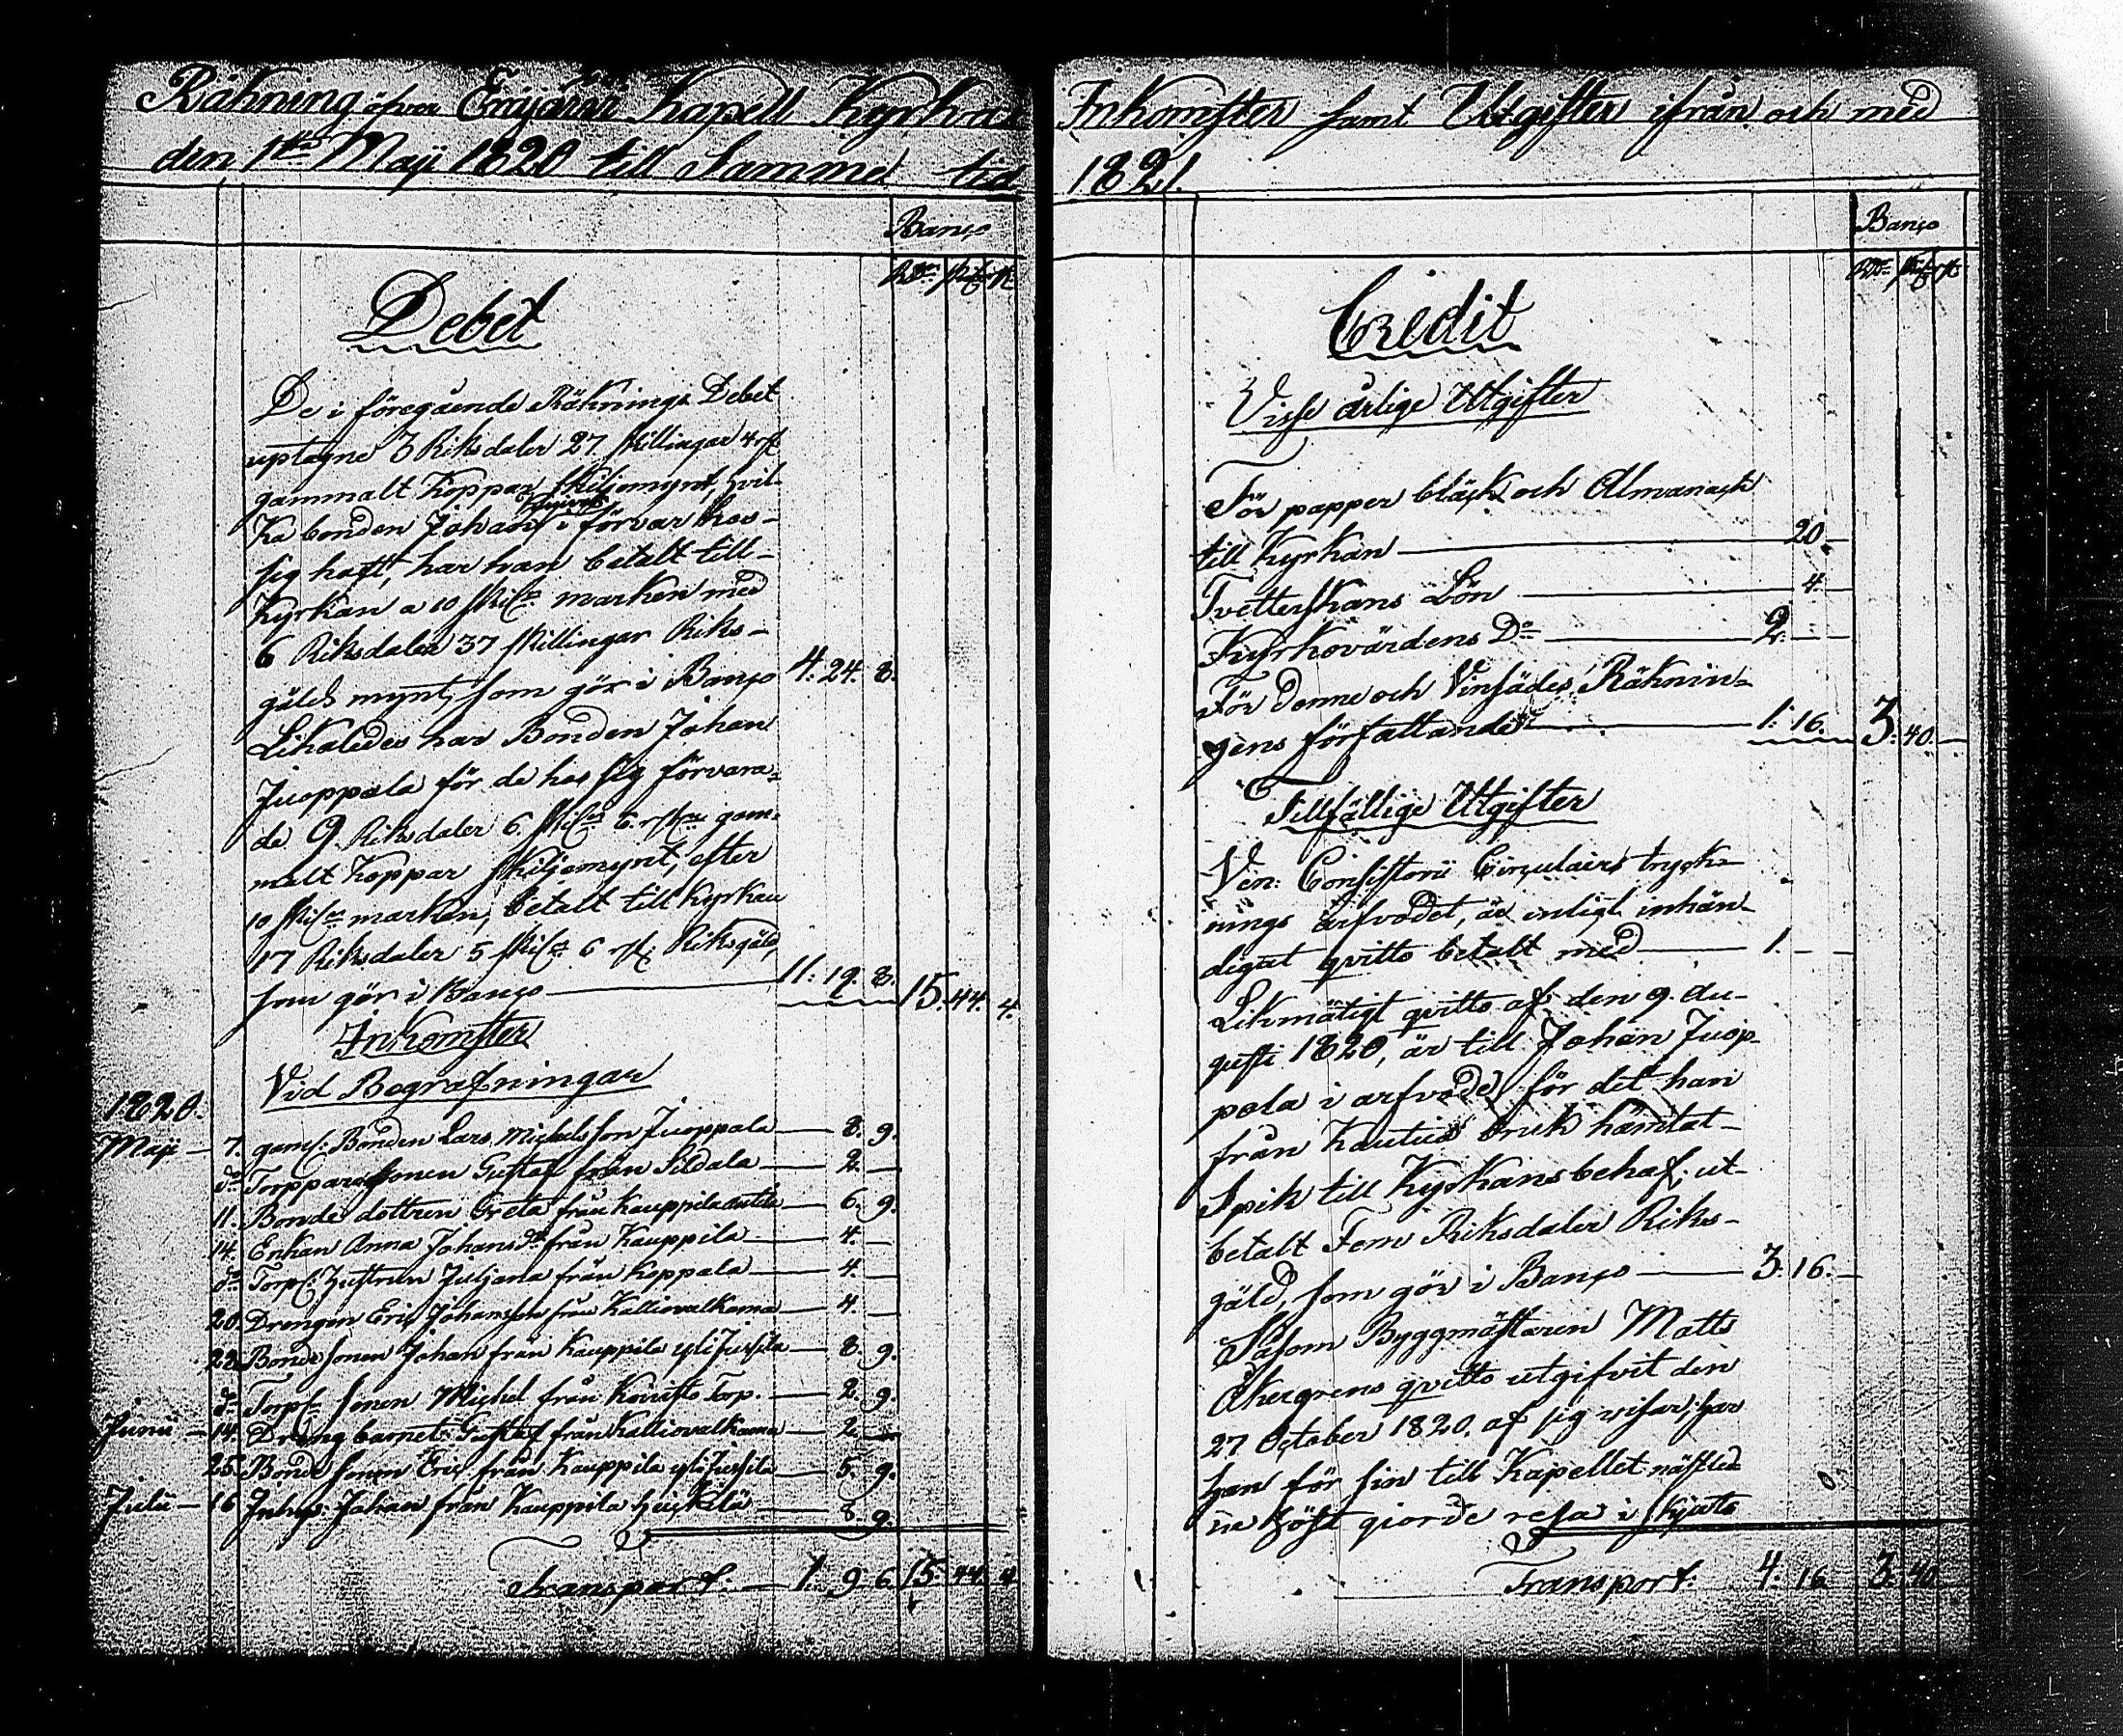 Räkning öfver Enijärvi Kapell Kyrkas
den 1sta Maji 1820 till Samma tid
Banco
RDr Skill. rst.
Debet
De i föregående Räknings Debet
uptagne 3 Riksdaler 27 Skillingar 4 rst
gammalt Koppar Skiljemynt, hvil-
ka bonden Johan i förvar hos
sig haft, har han betalt till
Kyrkan a 10 Skill. marken med
6 Riksdaler 37 Skillingar Riks-
gälds mynt, som gör i Banco 4. 24. 8.
Likaledes har Bonden Johan
Juoppala för de hos sig förvara-
de 9 Riksdaler 6 Skill. 6 rst. gam-
malt Koppar Skiljemynt, efter
10 Skill. marken, betalt till Kyrkan
17 Riksdaler 5 Skill. 6 rst. Riksgäld,
som gör i Banco 11. 19. 8. 15. 44. 4.
Inkomster
Vid Begrafningar
1820.
Maji 7. gaml. Bonden Lars Michelsson Juoppala 8. 9.
do Torpparesonen Gustaf från Sildala 2.
11. Bonde dottren Greta från Kauppila 6. 9.
14. Enkan Anna Johansdr från Kauppila 4.
do Torp. hustrun Juljana från Koppala 4.
20. Drengen Eric Johansson från Kalliovalkama 4.
28. Bonde sonen Johan från Kauppila yliJussila 8. 9.
do Torp. sonen Michel från Konisto Torp. 2. 9.
Junii 14. Dräng barnet Gustaf från Kalliovalkama 2.
25. Bonde sonen Eric från Kauppila yliJussila 5. 9.
Julii 16 Inhys. Johan från Kauppila Heickilä 8. 9.
Transport. 1. 9. 6. 15. 44. 4
Inkomster samt Utgifter ifrån och med
1821.
Banco
RDr Skill. rst.
Credit
Visse årlige Utgifter
För papper bläck och Almanach
till Kyrkan 20.
Tvetterskans Lön 4.
Kyrkovärdens Do 2.
För denne och Vinsädes Räknin-
gens författande 1. 16. 3. 40.
Tillfällige Utgifter
Ven: Consistorii Circulairs tryck-
nings arfvodet, är enligt inhän-
digat qvitto betalt med 1.
Likmätigt qvitto af den 9. Au-
gusti 1820, är till Johan Juop-
pala i arfvode för det han
från Kautua bruk hämtat
Spik till Kyrkans behof; ut-
betalt Fem Riksdaler Riks-
gäld, som gör i Banco 3. 16.
Såsom Byggmästaren Matts
Åkergrens qvitto utgifvit den
27 October 1820. af sig visar, har
han för sin till Kapellet nästled-
ne höst giorde resa i skjuts
Transport. 4. 16. 3. 40